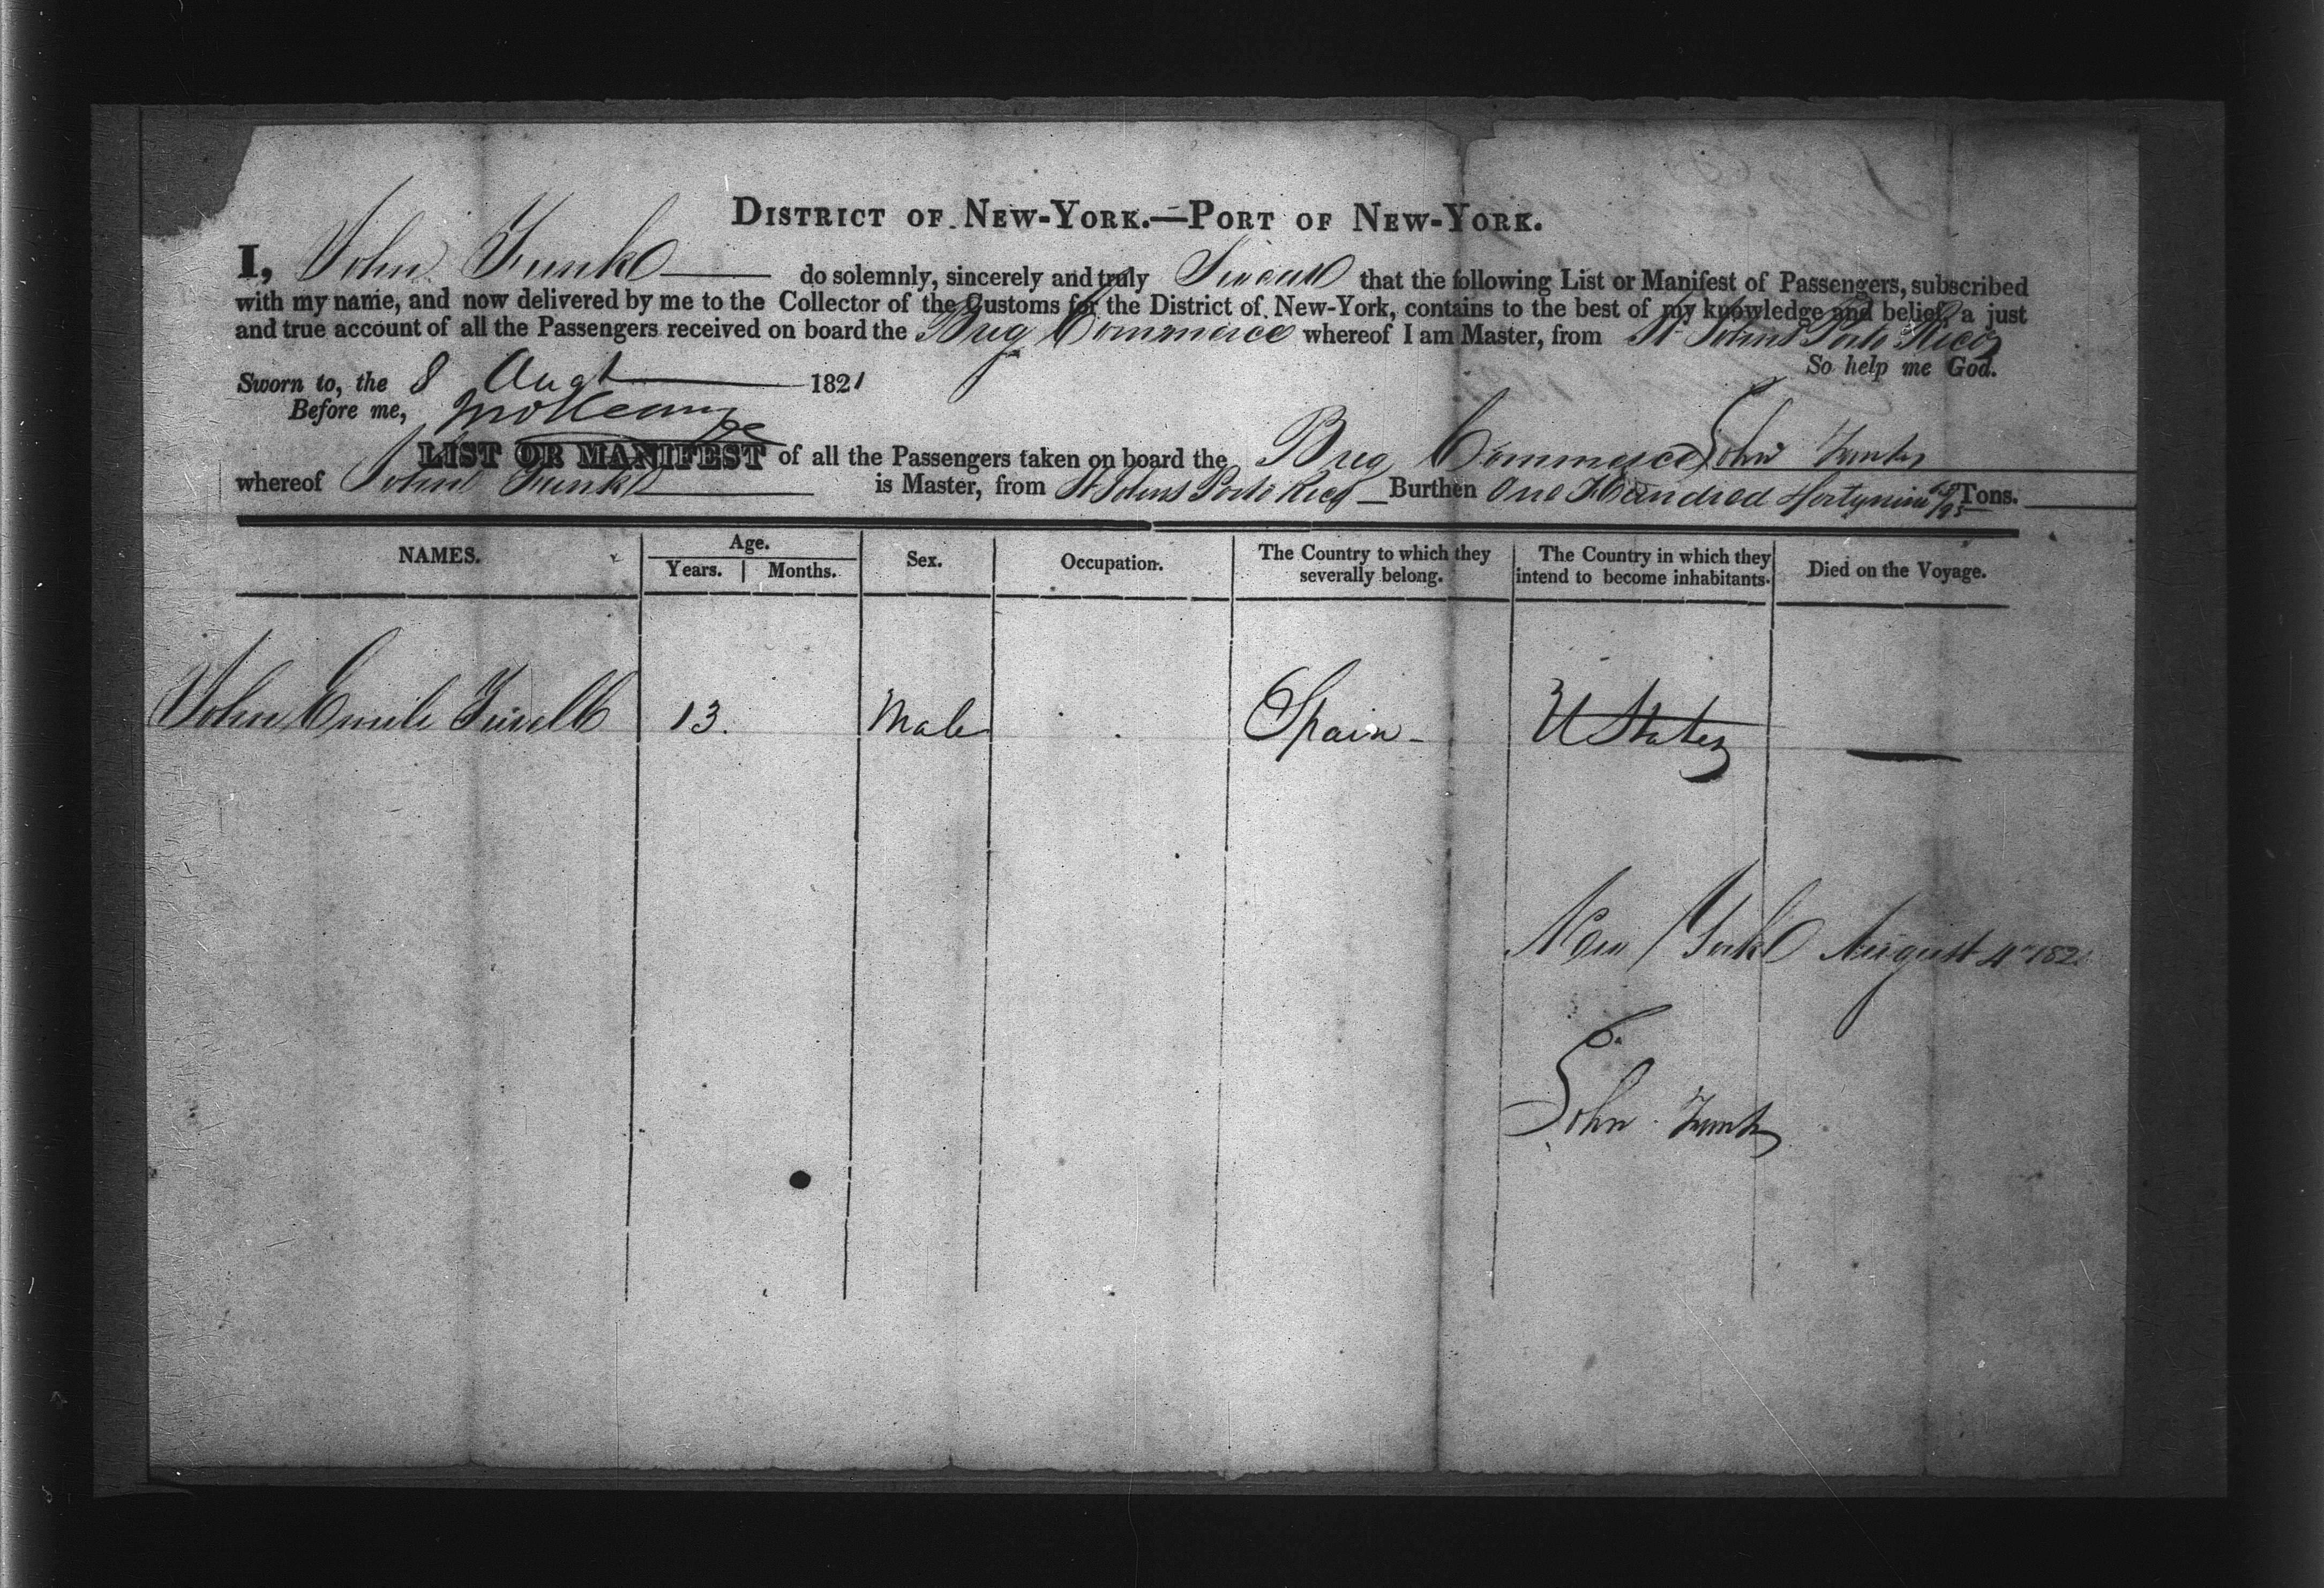 DISTRICT OF NEW-YORK.—PORT OF NEW-YORK.
I, John Funk do solemnly, sincerely and truly Swear that the following List or Manifest of Passengers, subscribed
with my name, and now delivered by me to the Collector of the Customs for the District of New-York, contains to the best of my knowledge and belief, a just
and true account of all the Passengers received on board the Brig Commerce whereof I am Master, from St Johns Porto Rico
So help me God.
Sworn to, the 8 Augt 1821
Before me,
LIST OR MANIFEST of all the Passengers taken on board the Brig Commerce John Funk
whereof John Funk is Master, from St Johns Porto Rico Burthen One Hundred fortynine Tons.
NAMES. Age. Sex. Occupation. The Country to which they severally belong. The Country in which they intend to become inhabitants. Died on the Voyage.
Years. Months.
John Emile 13. Male Spain U States —
New York August 4th 182
John Funk